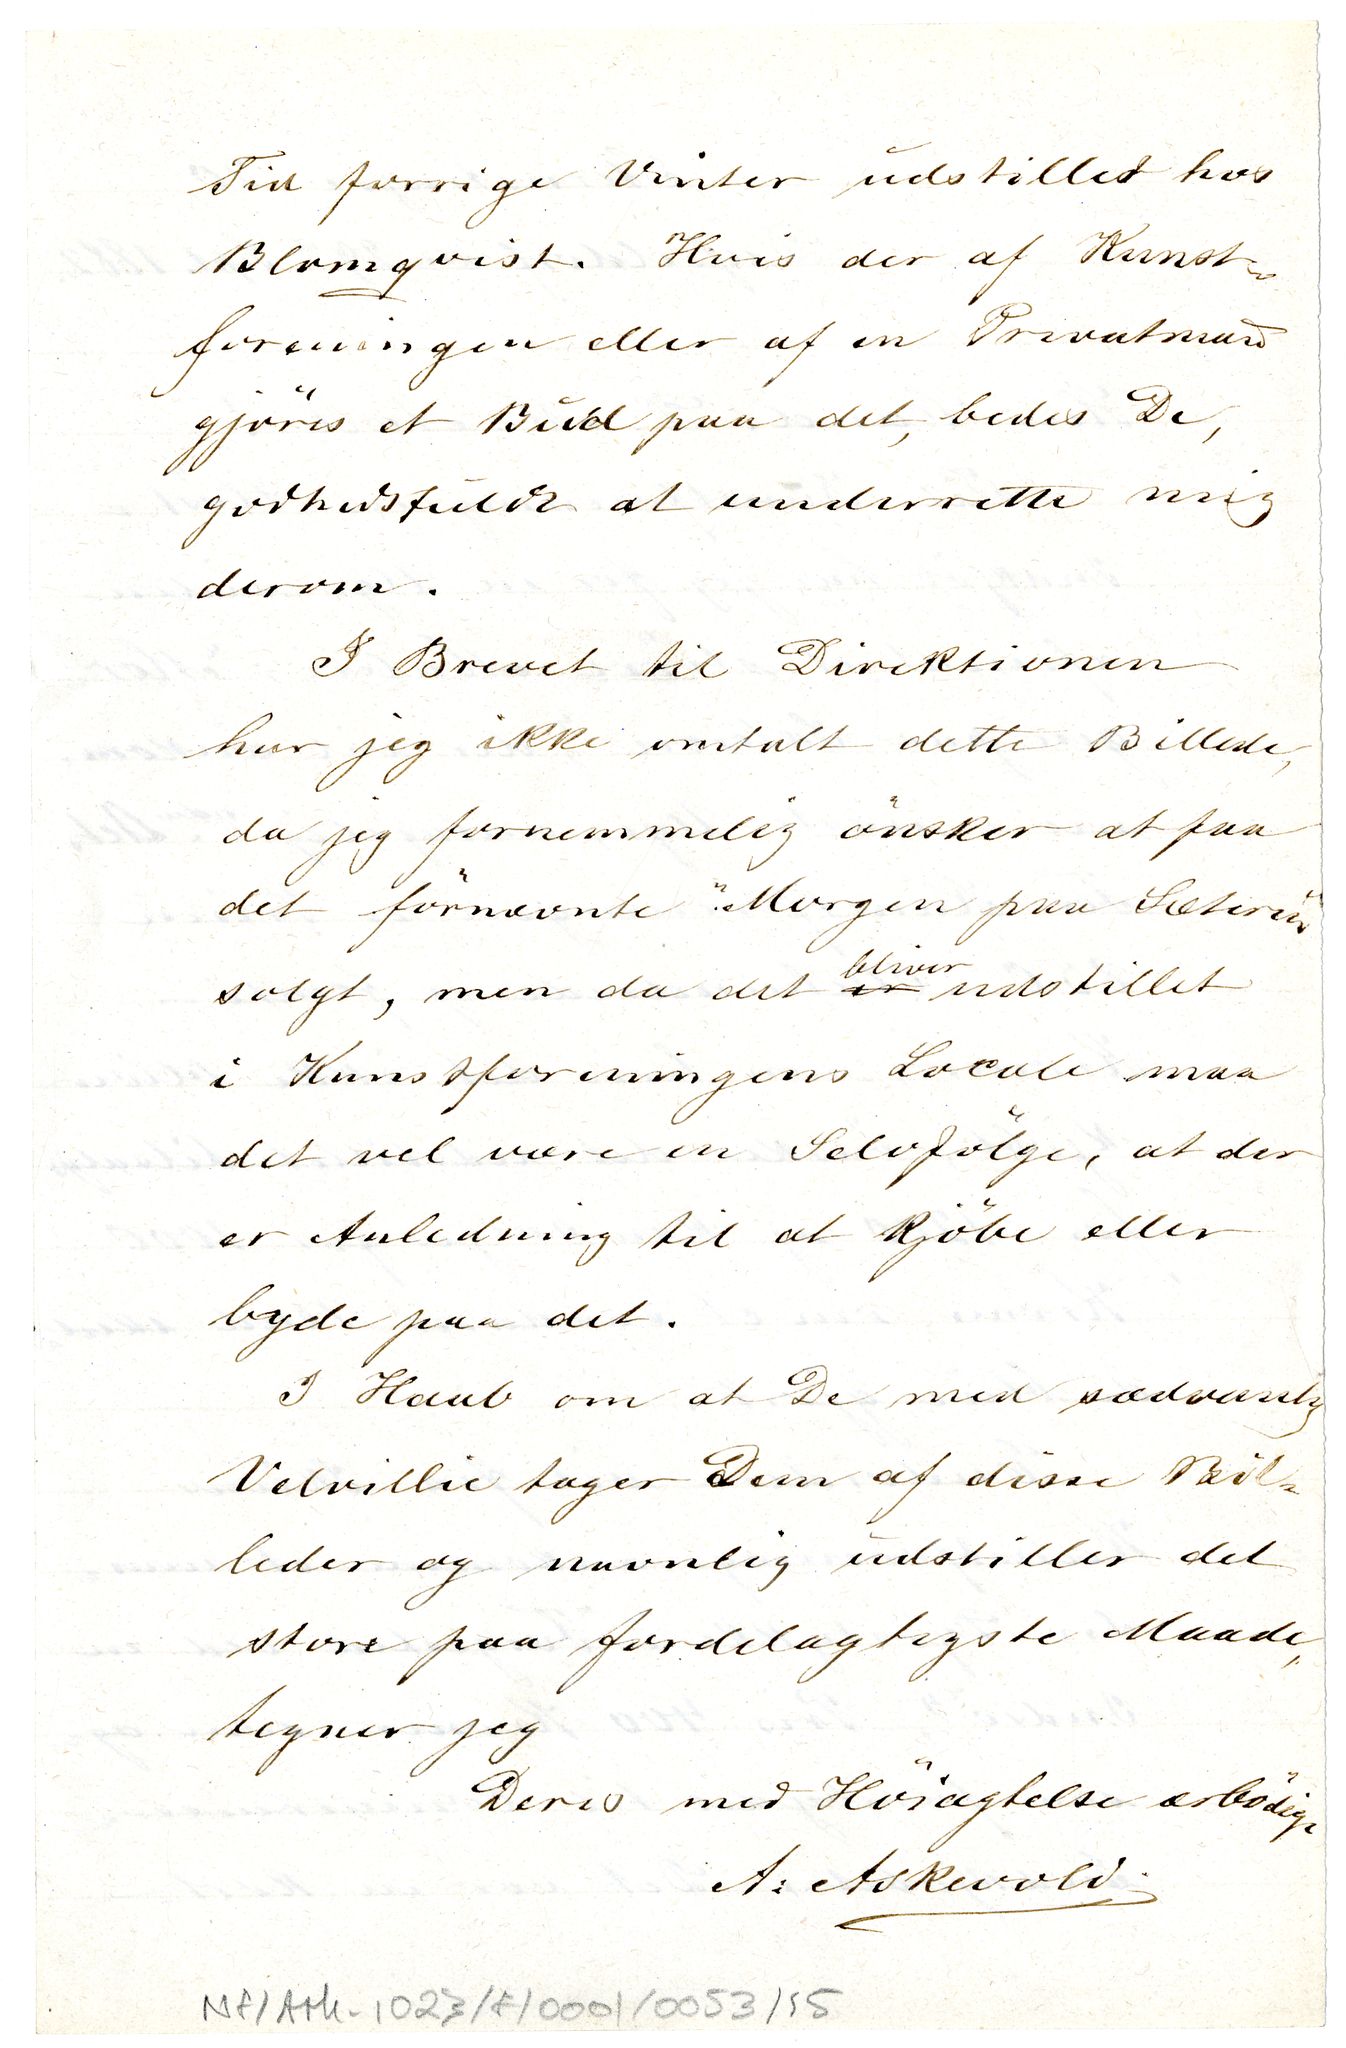 Tid forrige Vinter udstillet hos
Blomqvist. Hvis der af Kunst-
foreningen eller af en Privatmand
gjöres et Bud paa det, bedes De,
godhedsfuldt at underrette mig
derom.
I Brevet til Direktionen
har jeg ikke omtalt dette Billede,
da jeg fornemmelig önsker at faa
det förnævnte "Morgen paa Sæteren"
solgt, men da det er bliver udstillet
i Kunstforeningens Locale maa
det vel være en Selvfölge, at der
er Anledning til at kjöbe eller
byde paa det.
I Haab om at De med sædvanlig
Velvillie tager Dem af disse Bil-
leder og navnlig udstiller det
store paa fordelagtigste Maade,
tegner jeg
Deres med Höiagtelse ærbödige
A: Askevold.
NF/Ark-1023/F/0001/0053/15